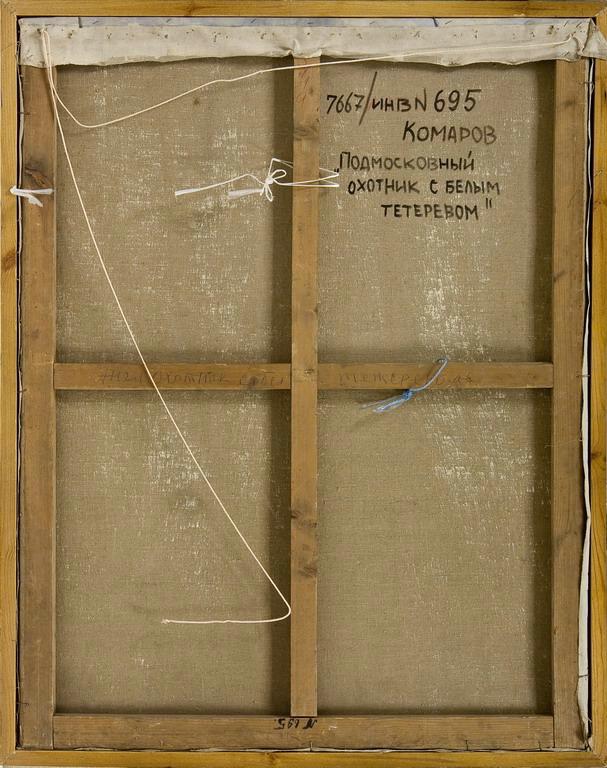 7667/ИНВN695
КОМАРОВ
"ПОДМОСКОВНЫЙ
ОХОТНИК С БЕЛЫМ
ТЕТЕРЕВОМ"
Охотник
N 695.